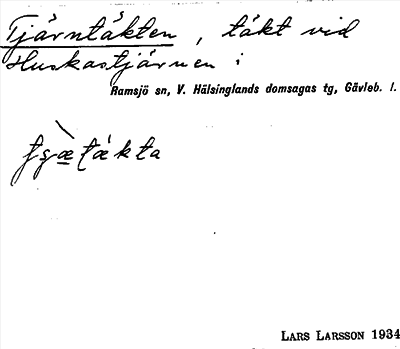 Tjärntäkten, täkt vid
Huskastjärnen i
Ramsjö sn, V. Hälsinglands domsagas tg, Gävleb. l.
LARS LARSSON 1934